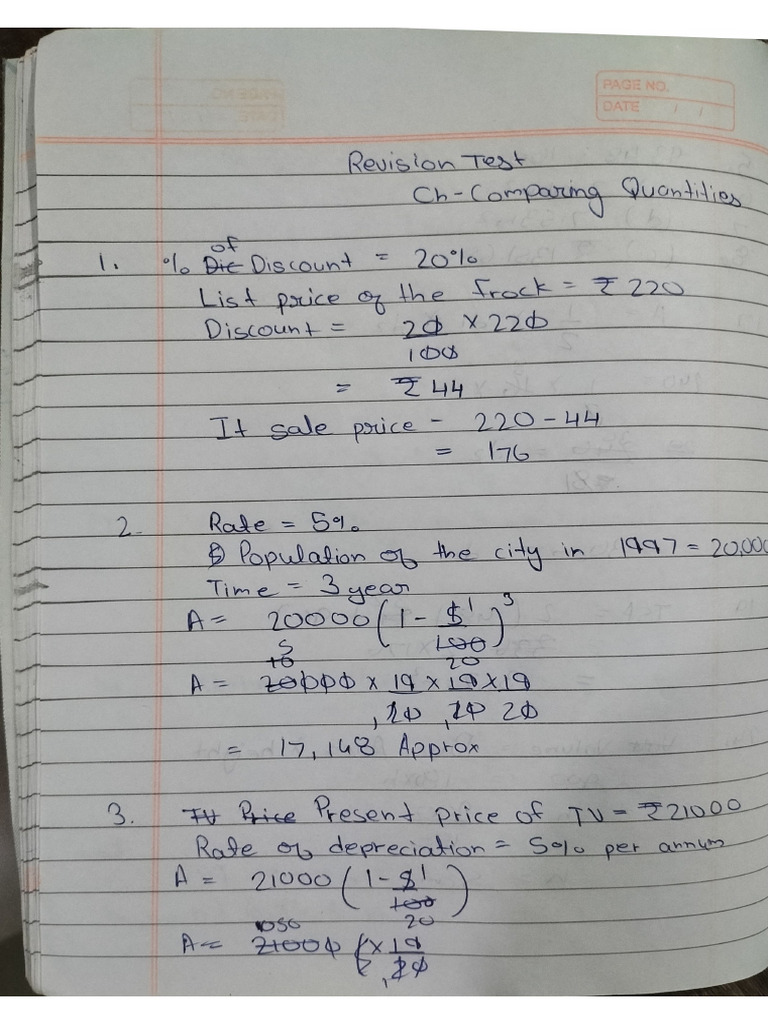 PAGE NO.
DATE / /
Revision Test
Ch-Comparing Quantities
1. % of Discount = 20%
List price of the frock = ₹ 220
Discount = 20 × 220
100
= ₹ 44
It sale price - 220 - 44
= 176
2. Rate = 5%
Population of the city in 1997 = 20,000
Time = 3 year
A = 20000 (1 - 5 1)3
100
5
10 20
A = 20000 × 19 × 19 × 19
20 20 20
= 17,148 Approx
3. TV Price Present price of TV = ₹ 21000
Rate of depreciation = 5% per annum
A = 21000 (1 - 5 1)
100
1050 20
A = 21000 ( × 19
20